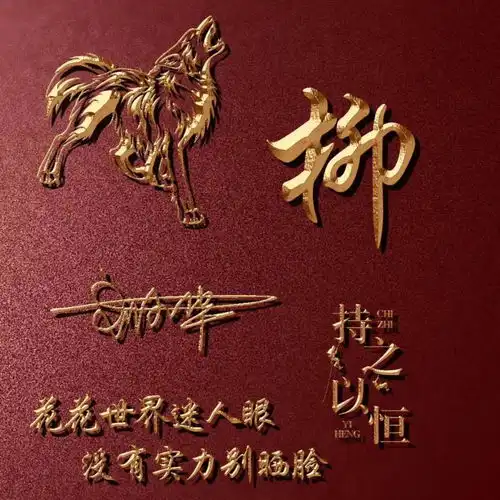 柳
持之以恒
CHI
ZHI
YI
HENG
花花世界迷人眼
没有实力别晒脸